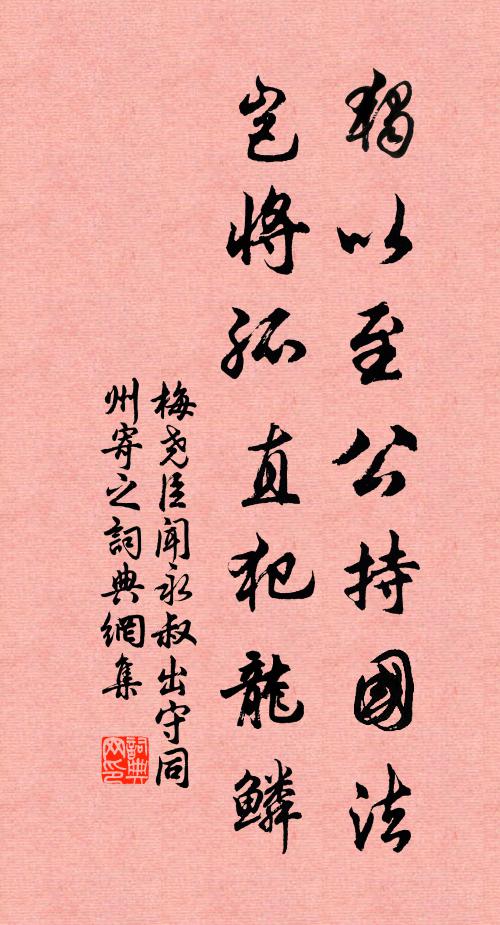 獨以至公持國法
豈將孤直犯龍鱗
梅堯臣聞永叔出守同
州寄之詞典網集
詞典
网印